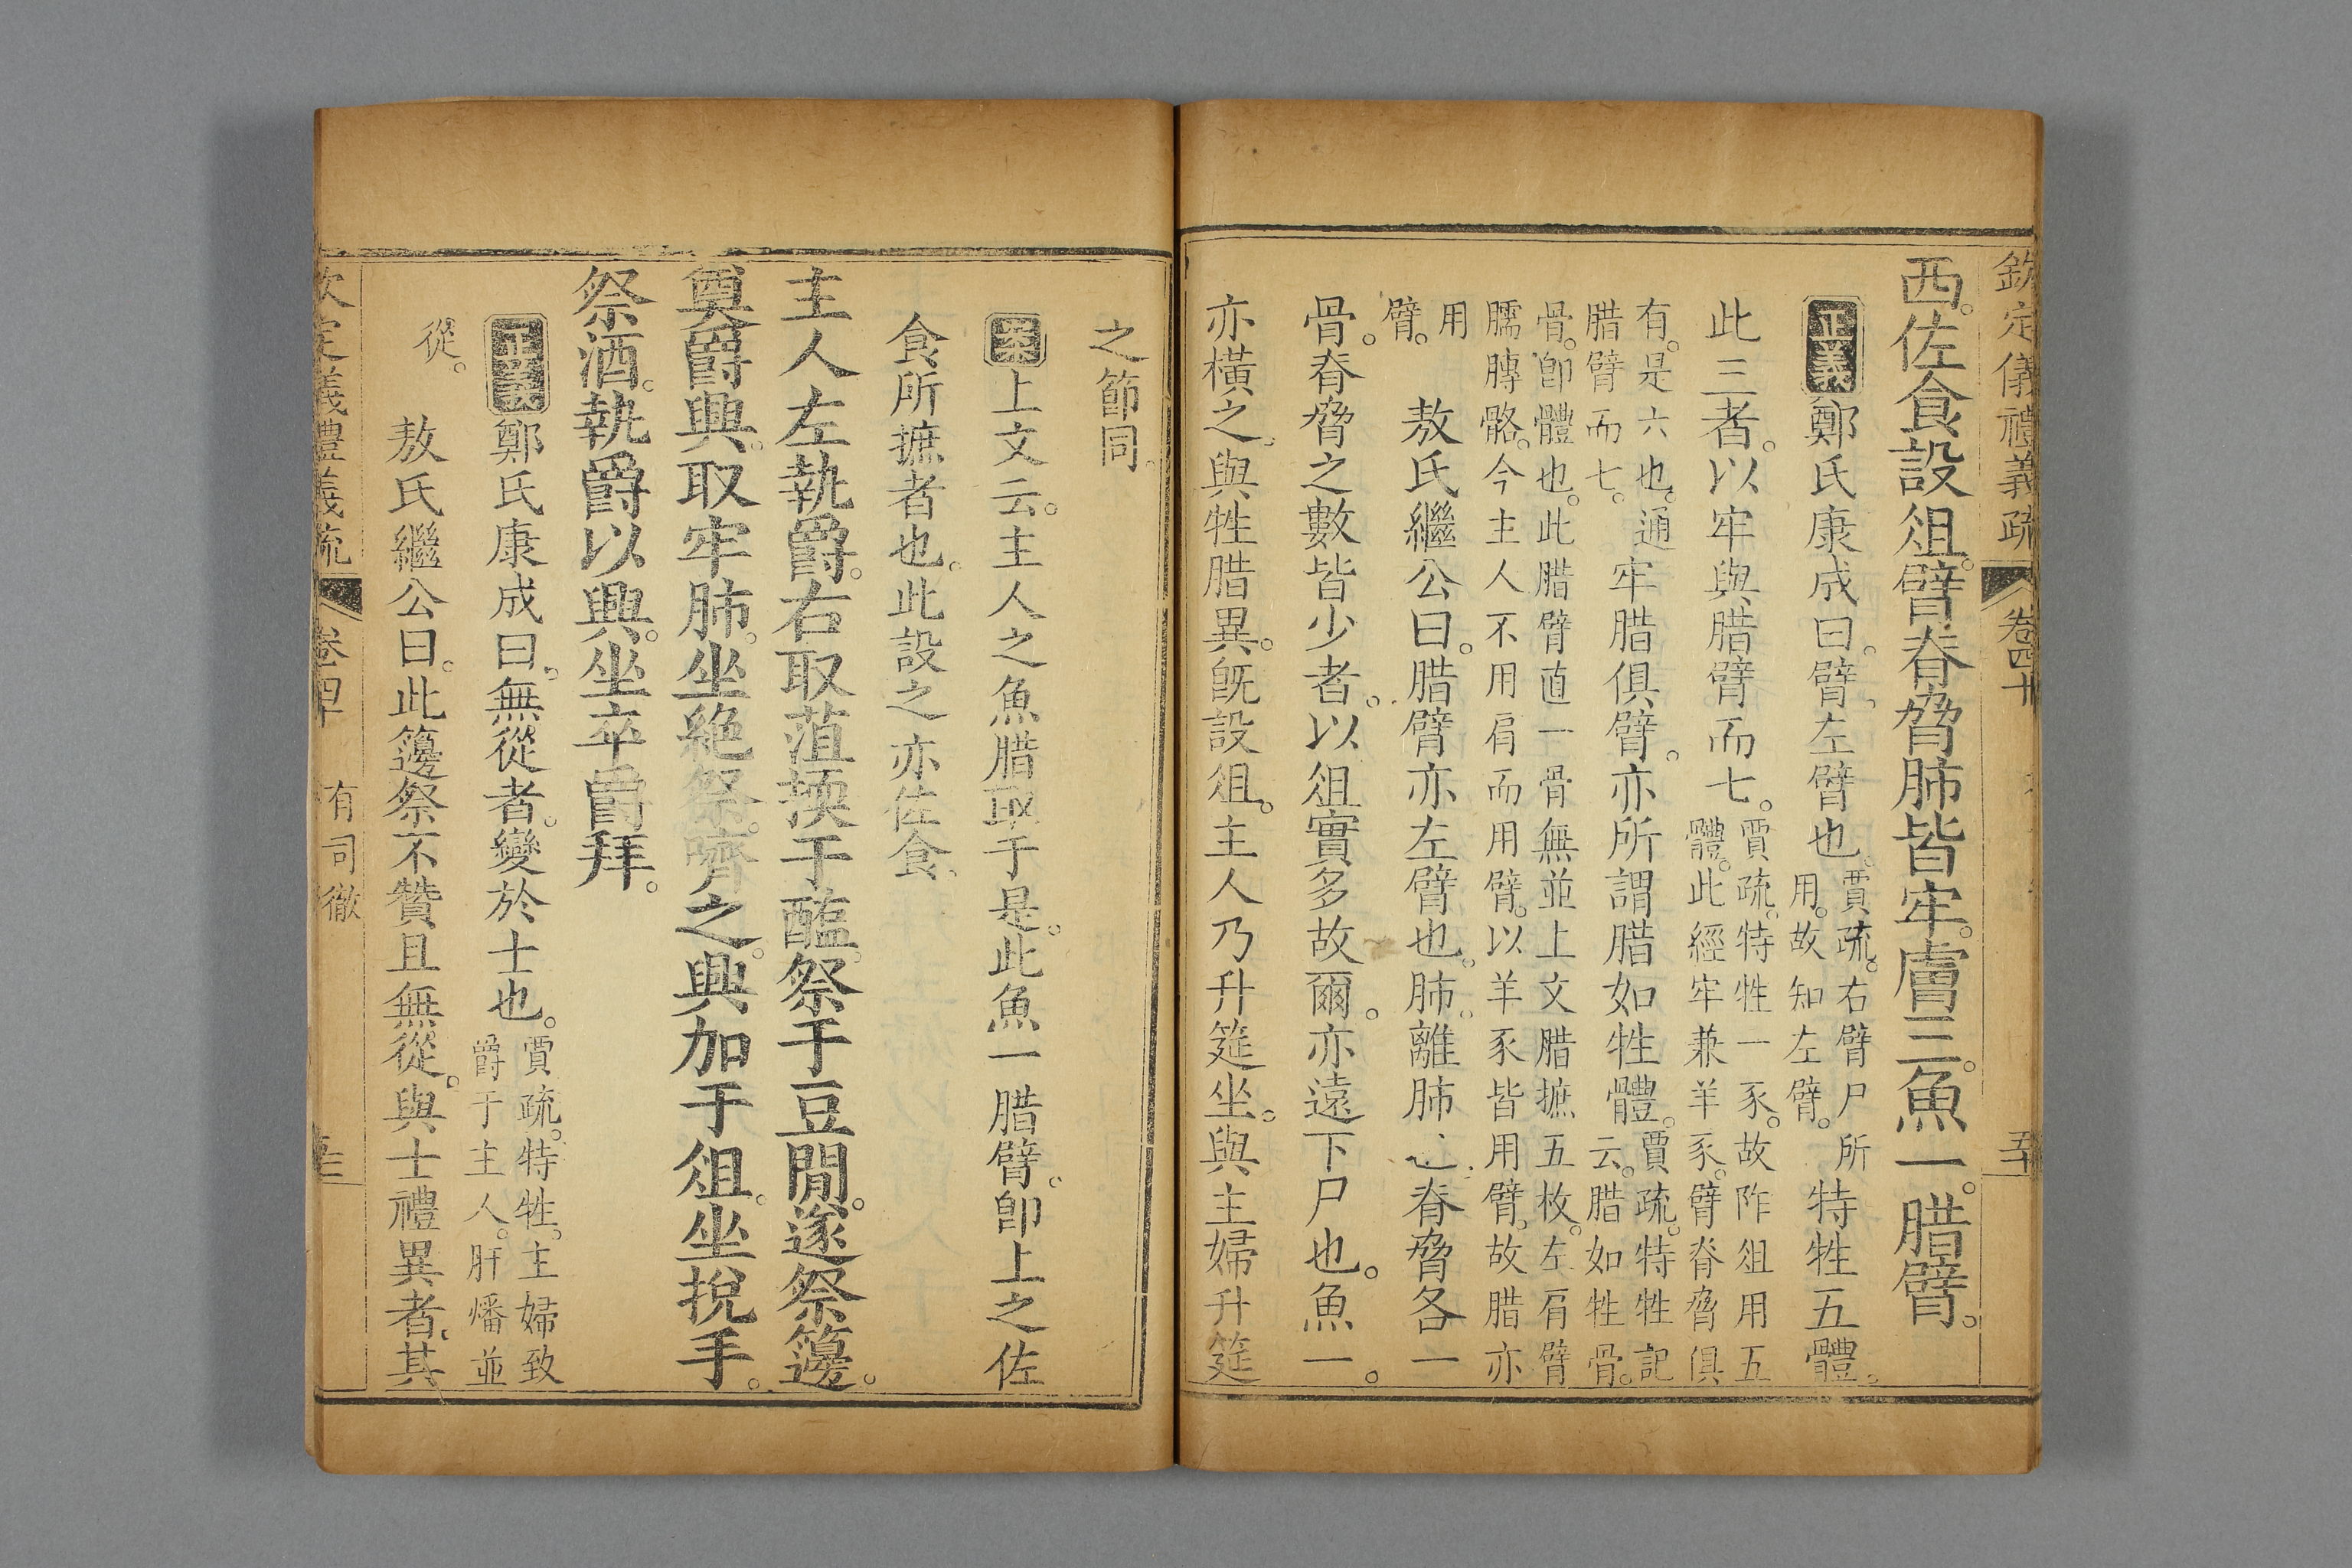 欽定儀禮義疏 卷四十
西。佐食設俎。臂脊脅肺皆牢。膚三。魚一。腊臂。
正義鄭氏康成曰。臂。左臂也。賈疏。右臂尸所用。故知左臂。特牲五體。
此三者。以牢與腊臂而七。賈疏。特牲一豕。故阼俎用五體。此經牢兼羊豕。臂脊脅俱
有。是六也。通腊臂而七。牢腊俱臂。亦所謂腊如牲體。賈疏。特牲記云。腊如牲骨。
骨。卽體也。此腊臂直一骨無並上文腊摭五枚。左肩臂
臑膞骼。今主人不用肩而用臂。以羊豕皆用臂。故腊亦
用臂。敖氏繼公曰。腊臂亦左臂也。肺。離肺也。脊脅各一
骨。脊脅之數皆少者。以俎實多故爾。亦遠下尸也。魚一。
亦橫之。與牲腊異。旣設俎。主人乃升筵坐。與主婦升筵
之節同。
案上文云。主人之魚腊取于是。此魚一腊臂。卽上之佐
食所摭者也。此設之亦佐食。
主人左執爵。右取菹擩于醢。祭于豆閒。遂祭籩。
奠爵興。取牢肺。坐絶祭。嚌之。興加于俎。坐挩手。
祭酒。執爵以興。坐卒爵拜。
正義鄭氏康成曰。無從者。變於士也。賈疏。特牲。主婦致爵于主人。肝燔並
從。敖氏繼公曰。此籩祭不贊且無從。與士禮異者。其
欽定儀禮義疏 卷四十 有司徹